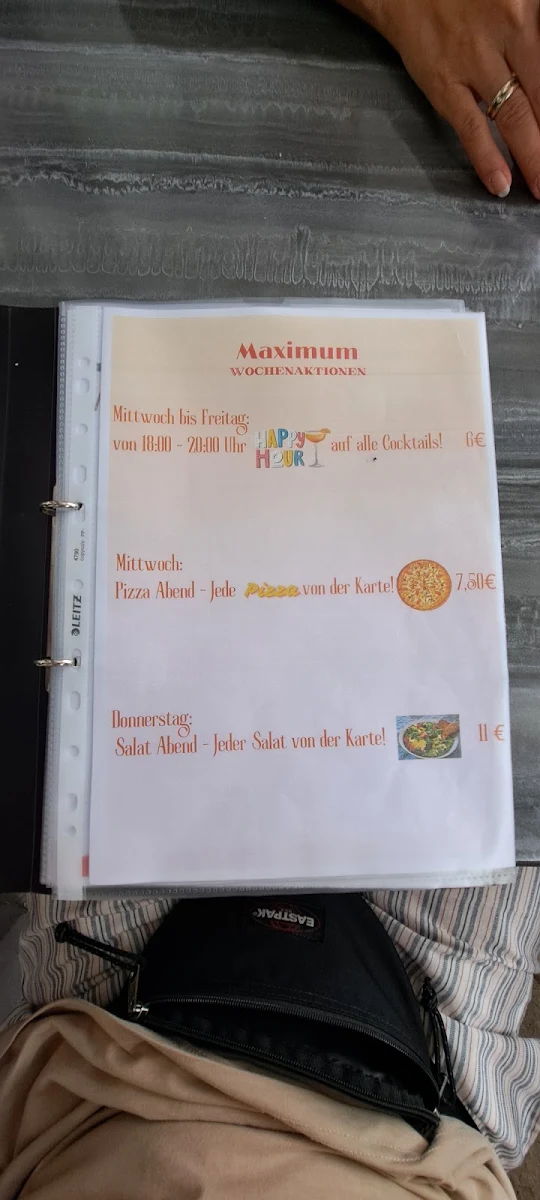 Maximum
WOCHENAKTIONEN
Mittwoch bis Freitag:
von 18:00 - 20:00 Uhr HAPPY HOUR auf alle Cocktails! 6€
Mittwoch:
Pizza Abend - Jede Pizza von der Karte! 7,50€
Donnerstag:
Salat Abend - Jeder Salat von der Karte! 11 €
LEITZ
4790
EASTPAK